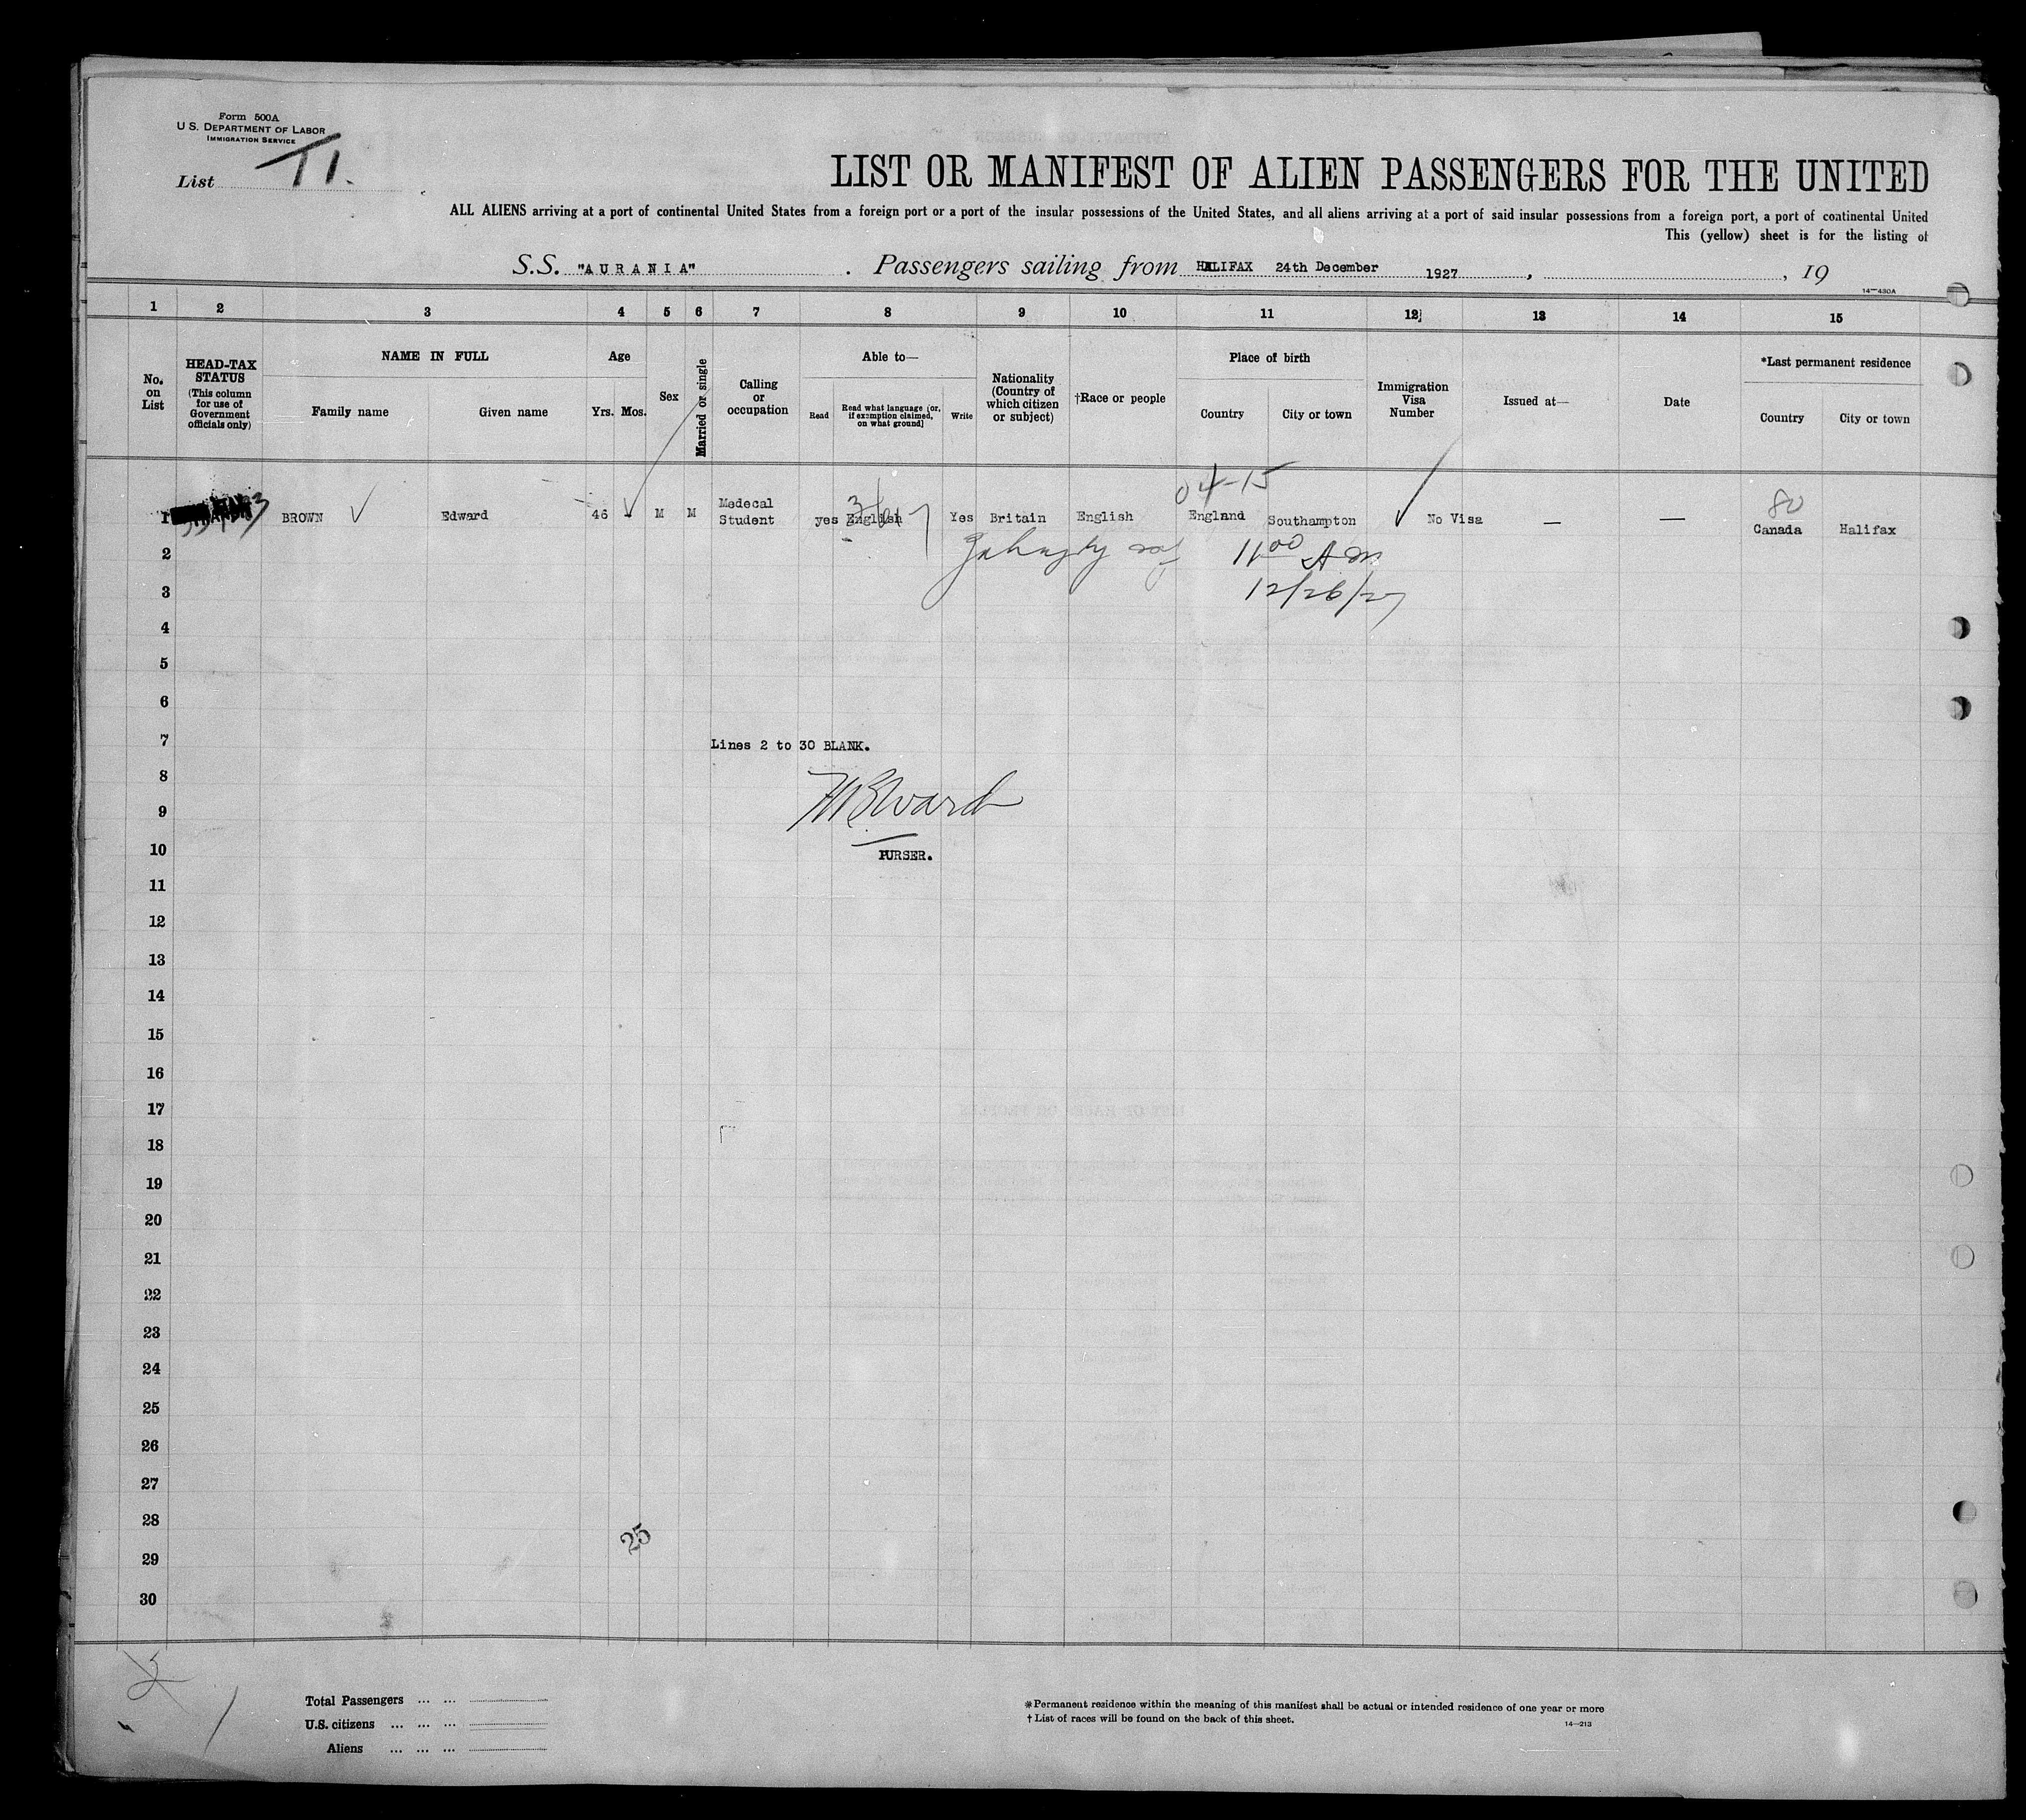 Form 500A
U. S. DEPARTMENT OF LABOR
IMMIGRATION SERVICE
List T1.
LIST OR MANIFEST OF ALIEN PASSENGERS FOR THE UNITED
ALL ALIENS arriving at a port of continental United States from a foreign port or a port of the insular possessions of the United States, and all aliens arriving at a port of said insular possessions from a foreign port, a port of continental United
This (yellow) sheet is for the listing of
S.S. "AURANIA" . Passengers sailing from HALIFAX 24th December 1927 , , 19
14—430A
1 2 3 4 5 6 7 8 9 10 11 12 13 14 15
No. on List
HEAD-TAX STATUS
(This column for use of Government officials only)
NAME IN FULL
Family name
Given name
Age
Yrs. Mos.
Sex
Married or single
Calling or occupation
Able to—
Read
Read what language [or, if exemption claimed, on what ground]
Write
Nationality (Country of which citizen or subject)
†Race or people
Place of birth
Country
City or town
Immigration Visa Number
Issued at—
Date
*Last permanent residence
Country
City or town
04-15
80
1 BROWN Edward 46 - M M Medecal Student yes English Yes Britain English England Southampton No Visa — — Canada Halifax
2 11 00 AM
3 12/26/27
4
5
6
7 Lines 2 to 30 BLANK.
8
9 Ward
10 PURSER.
11
12
13
14
15
16
17
18
19
20
21
22
23
24
25
26
27
28 25
29
30
Total Passengers ... ...
U.S. citizens ... ... ...
Aliens ... ... ...
*Permanent residence within the meaning of this manifest shall be actual or intended residence of one year or more
† List of races will be found on the back of this sheet.
14—213